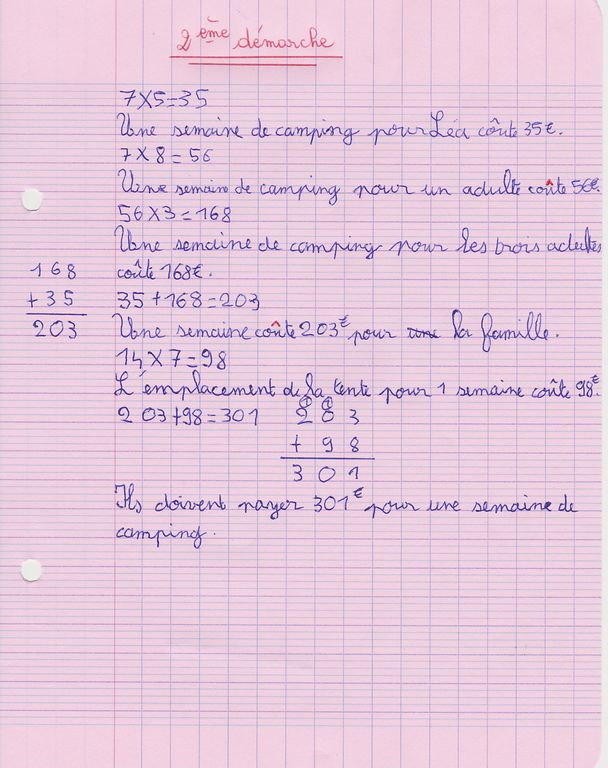 2ème démarche
7×5=35
Une semaine de camping pour Léa coûte 35€.
7×8=56
Une semain de camping pour un adulte coûte 56€.
56×3=168
Une semaine de camping pour les trois adultes
coûte 168€.
168
+35
203
35+168=203
Une semaine coûte 203€ pour la famille.
14×7=98
L'emplacement de la tente pour 1 semaine coûte 98€.
203+98=301
1 1
203
+ 98
301
Ils doivent payer 301€ pour une semaine de
camping.